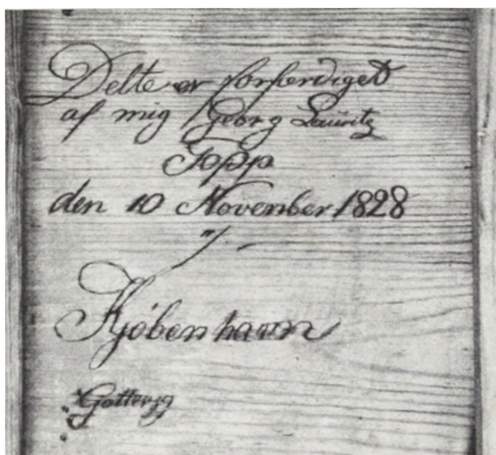 Dette er forferdiget
af mig Georg Lauritz
Topp
den 10 November 1828
Kjöbenhavn